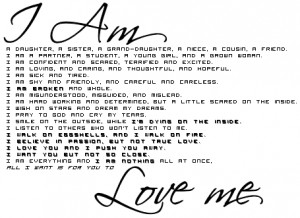 I Am
A DAUGHTER, A SISTER, A GRAND-DAUGHTER, A NIECE, A COUSIN, A FRIEND.
I AM A PARTNER, A STUDENT, A YOUNG GIRL, AND A GROWN WOMAN.
I AM CONFIDENT AND SCARED, TERRIFIED AND EXCITED.
I AM LOVING, AND CARING, AND THOUGHTFUL, AND HOPEFUL.
I AM SICK AND TIRED.
I AM SHY AND FRIENDLY, AND CAREFUL AND CARELESS.
I AM BROKEN AND WHOLE.
I AM MISUNDERSTOOD, MISGUIDED, AND MISLEAD.
I AM HARD WORKING AND DETERMINED, BUT A LITTLE SCARED ON THE INSIDE.
I WISH ON STARS AND DREAM MY DREAMS.
I PRAY TO GOD AND CRY MY TEARS.
I SMILE ON THE OUTSIDE, WHILE I'M DYING ON THE INSIDE.
I LISTEN TO OTHERS WHO WON'T LISTEN TO ME.
I WALK ON EGGSHELLS, AND I WALK ON FIRE.
I BELIEVE IN PASSION, BUT NOT TRUE LOVE.
I LOVE YOU AND I PUSH YOU AWAY.
I WANT YOU BUT NOT SO CLOSE.
I AM EVERYTHING AND I AM NOTHING ALL AT ONCE.
ALL I WANT IS FOR YOU TO
Love me